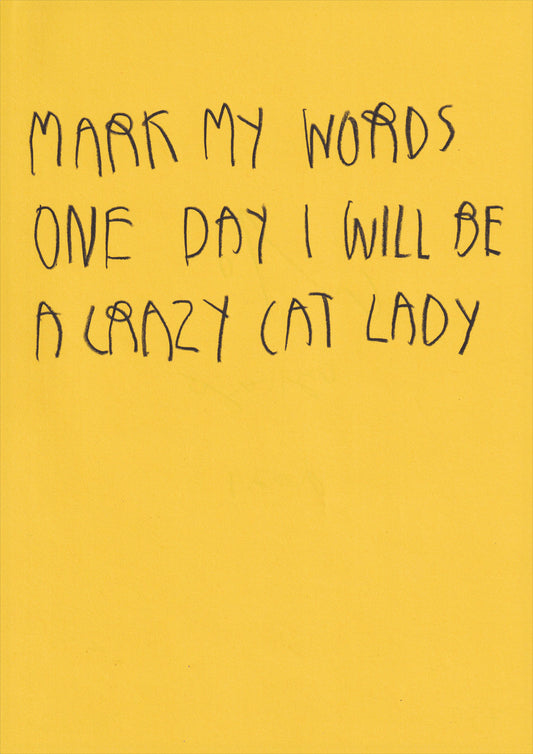 MARK MY WORDS
ONE DAY I WILL BE
A CRAZY CAT LADY